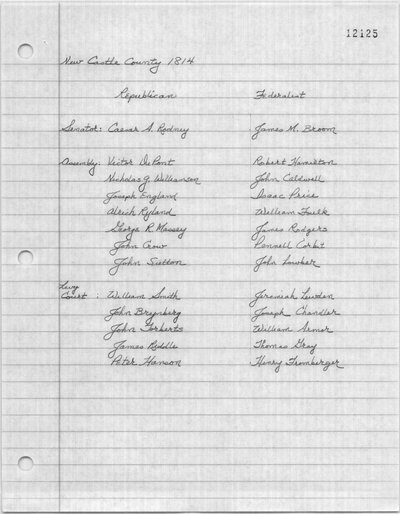 12125
New Castle County 1814
Republican Federalist
Senator: Caesar A. Rodney James M. Broom
Assembly: Victor DuPont Robert Hamilton
Nicholas G. Williamson John Caldwell
Joseph England Isaac Price
Alrich Ryland William Faulk
George R. Massey James Rodgers
John Crow Pennell Corbit
John Sutton John Lowber
Levy
Court : William Smith Jeremiah Lewden
John Brynberg Joseph Chandler
John William Armor
James Riddle Thomas Gray
Peter Hanson Henry Fromberger